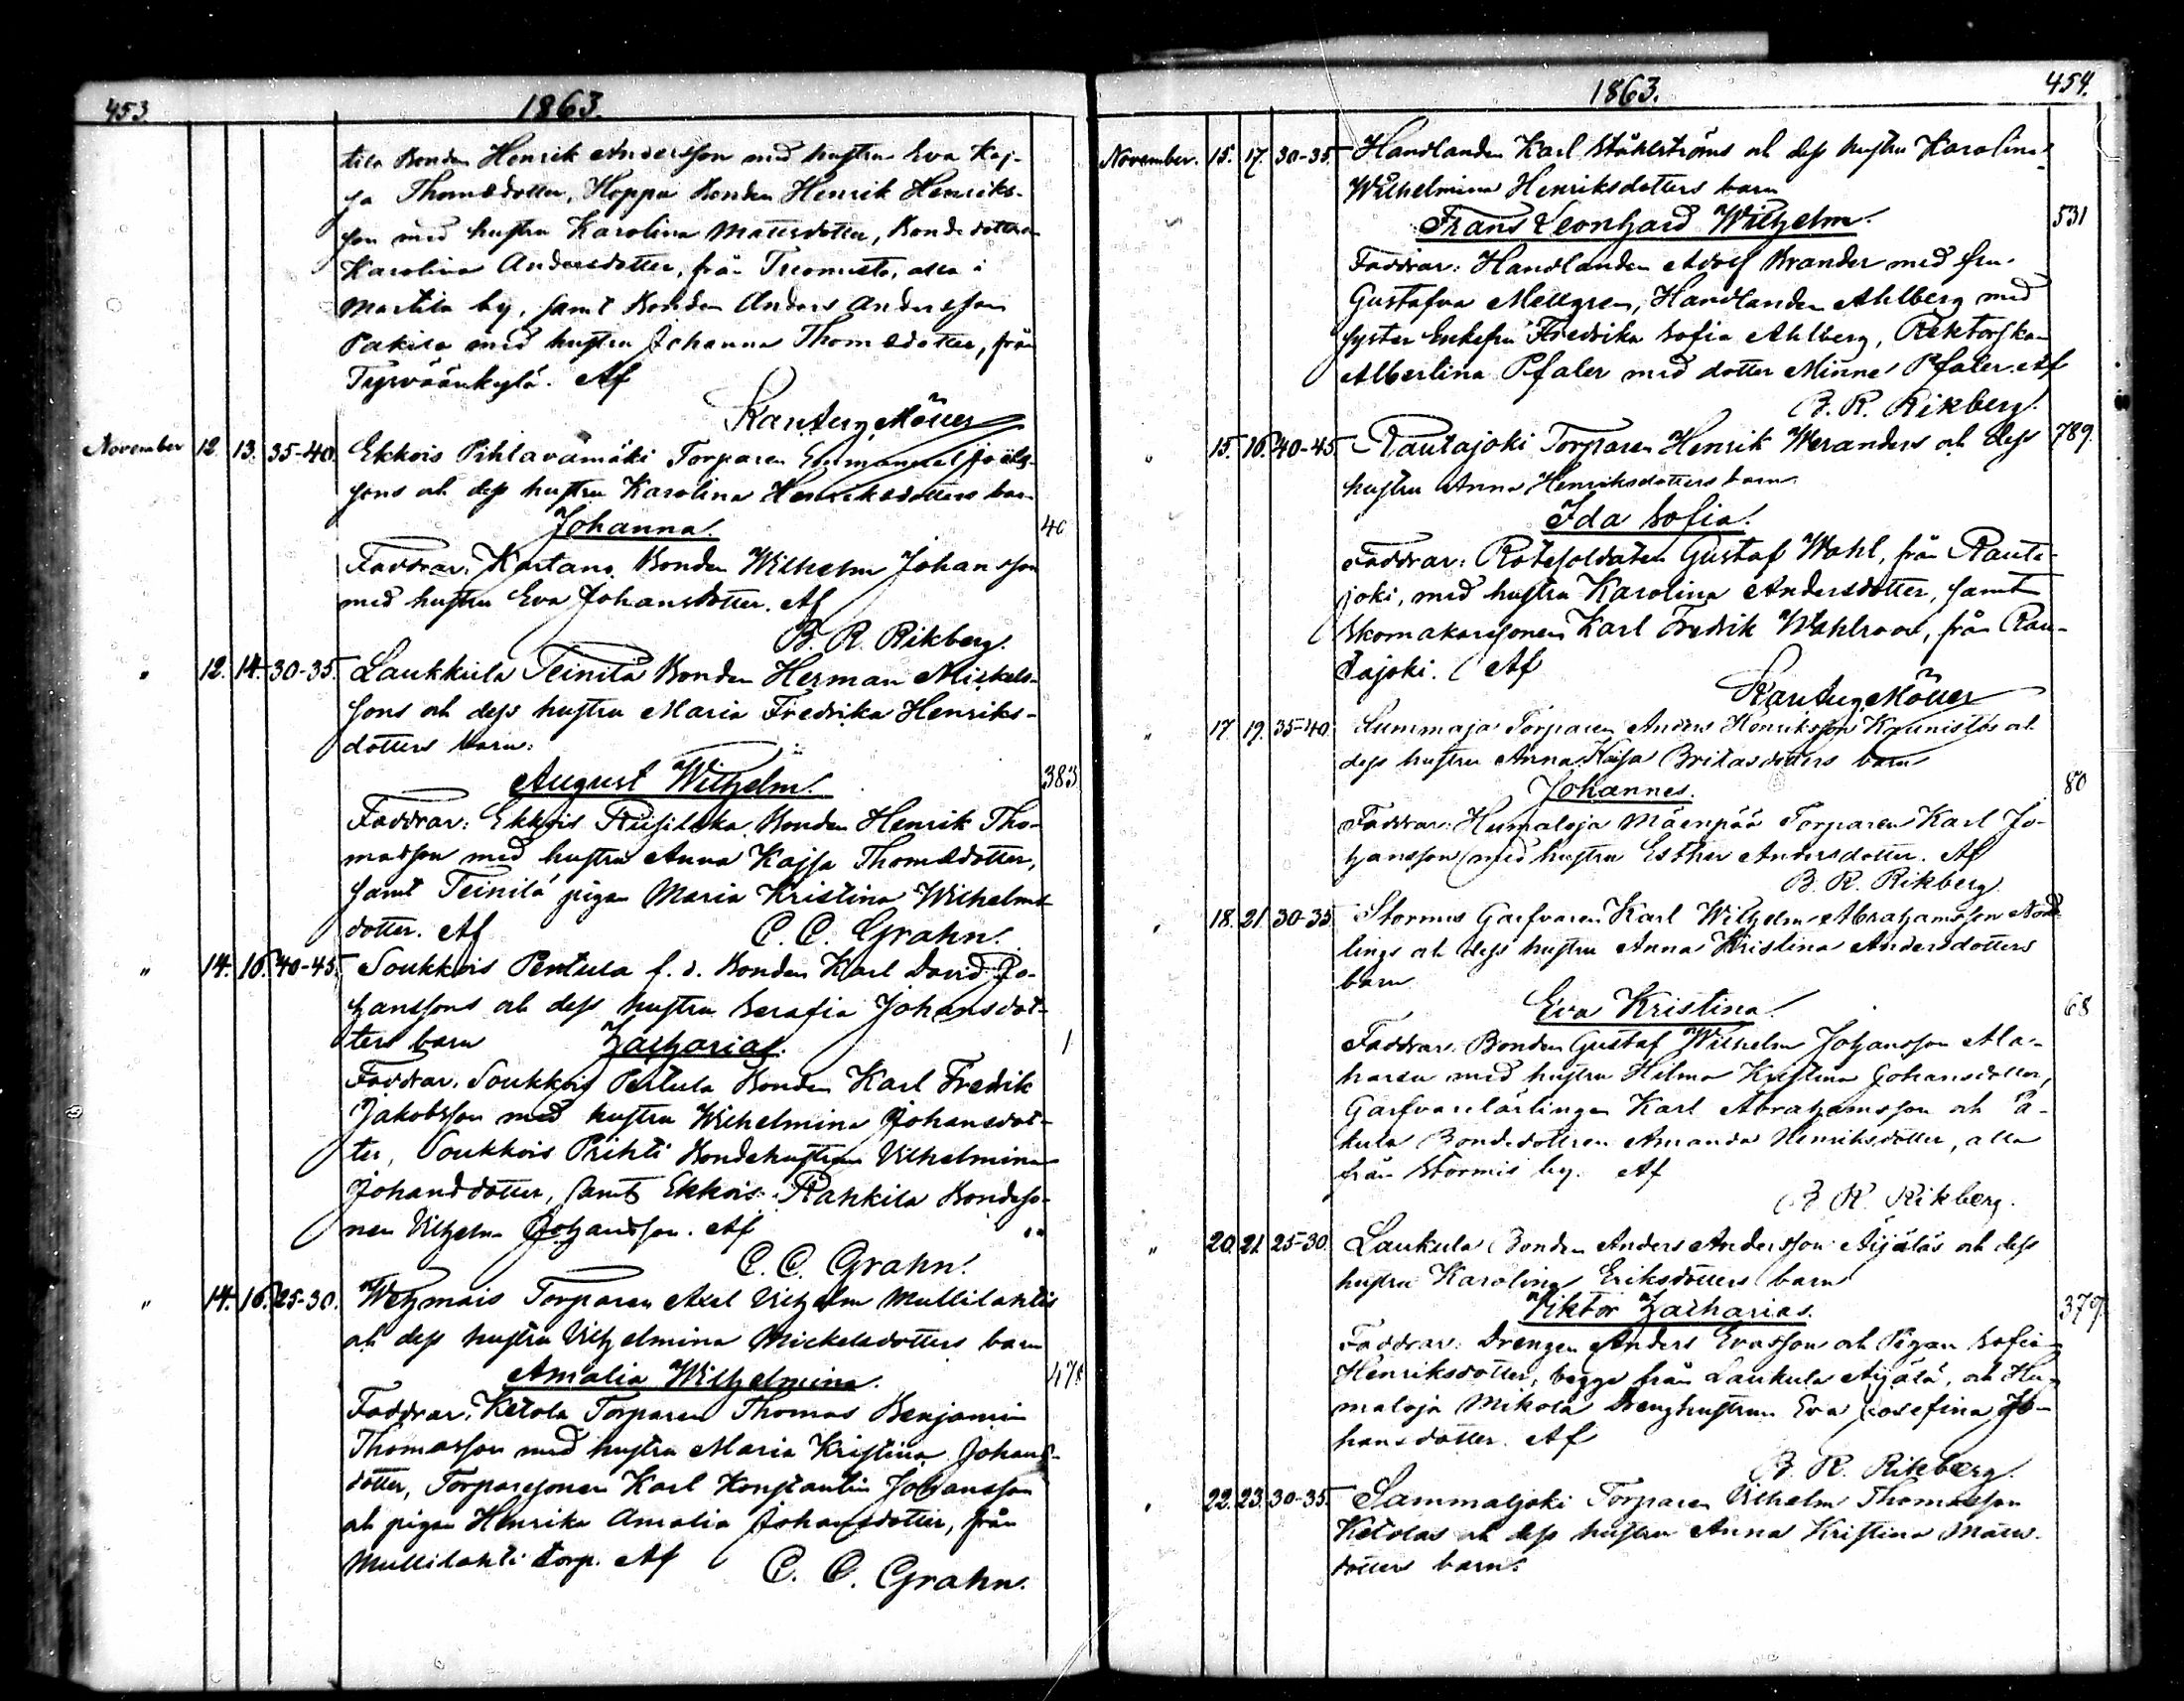 453
1863.
tila Bonden Henrik Andersson med hustru Eva Kaj-
sa Thomædotter, Hoppa Bonden Henrik Henriks-
son med hustru Karolina Mattsdotter, Bondedottren
Karolina Andersdotter, från Tuomisto, alla i
Martila by, samt Bonden Anders Andersson
Pakila med hustru Johanna Thomædotter, från
Tyrväänkylä. Af
November 12. 13. 35-40. Ekkois Pihlavamäki Torparen Enmanuel Joels-
sons och dess hustru Karolina Henriksdotters barn
Johanna. 40
Faddrar: Kartano Bonden Wilhelm Johansson
med hustru Eva Johansdotter. Af
B. R. Rikberg.
" 12. 14. 30-35. Laukkula Teinilä Bonden Herman Mickels-
sons och dess hustru Maria Fredrika Henriks-
dotters barn:
August Wilhelm. 383
Faddrar: Ekkois Bonden Henrik Tho-
masson med hustru Anna Kajsa Thomædotter,
samt Teinilä pigan Maria Kristina Wilhelms-
dotter. Af C. C. Grahn.
" 14. 16. 40-45. Soukkois Pentula f. d. Bonden Karl David Jo-
hanssons och dess hustru Serafia Johansdot-
ters barn Zacharias. 1
Faddrar: Soukkois Pertula Bonden Karl Fredrik
Jakobsson med hustru Wilhelmina Johansdot-
ter, Soukkois Prihti Bondehustrun Vilhelmina
Johansdotter, samt Ekkois Rahkila Bondeso-
nen Vilhelm Johansson. Af
C. C. Grahn.
" 14. 16. 25-30. Wehmais Torparen Axel Vilhelm Mullilahtis
och dess hustru Vilhelmina Mickelsdotters barn
Amalia Wilhelmina. 478
Faddrar: Ketola Torparen Thomas Benjamin
Thomasson med hustru Maria Kristina Johans-
dotter, Torparesonen Karl Konstantin Johansson
och pigan Henrika Amalia Johansdotter, från
Mullilahti torp. Af C. C. Grahn.
1863. 454.
November. 15. 17. 30-35. Handlanden Karl Ståhlströms och dess hustru Karolina
Wilhelmina Henriksdotters barn
Frans Leonhard Wilhelm. 531
Faddrar: Handlanden Adolf Brander med fru
Gustafva Mellgren, Handlanden Ahlberg med
syster Enkefru Fredrika Sofia Ahlberg, Rektorskan
Albertina Pfaler med dotter Minna Pfaler. Af
B. R. Rikberg.
" 15. 16. 40-45. Rautajoki Torparen Henrik Weranders och dess 789.
hustru Anna Henriksdotters barn
Ida Sofia.
Faddrar: Rotesoldaten Gustaf Wahl, från Rauta-
joki, med hustru Karolina Andersdotter, samt
Skomakaresonen Karl Fredrik Wahlroos, från Rau-
tajoki. Af
" 17. 19. 35-40. Torparen Anders Henriksson Kaunistos och
dess hustru Anna Kaisa Britasdotters barn
Johannes. 80
Faddrar: Humaloja Mäenpää Torparen Karl Jo-
hansson med hustru Esther Andersdotter. Af
B. R. Rikberg
" 18. 21. 30-35. Stormis Garfvaren Karl Wilhelm Abrahamsson Nord-
lings och dess hustru Anna Kristina Andersdotters
barn
Eva Kristina. 68
Faddrar: Bonden Gustaf Wilhelm Johansson Ala-
med hustru Hilma Kristina Johansdotter,
Garfvarelärlingen Karl Abrahamsson och Pa-
kula Bondedottren Amanda Henriksdotter, alla
från Stormis by. Af
B. R. Rikberg.
" 20. 21. 25-30. Laukula Bonden Anders Andersson Äijäläs och dess
hustru Karolina Eriksdotters barn
Viktor Zacharias. 379
Faddrar: Drengen Anders Evasson och Pigan Sofia
Henriksdotter, begge från Laukula Äijälä, och Hu-
maloja Mikola Drenghustrun Eva Josefina Jo-
hansdotter. Af
B. R. Rikberg.
" 22. 23. 30-35. Sammaljoki Torparen Vilhelm Thomasson
Ketolas och dess hustru Anna Kristina Matts-
dotters barn: